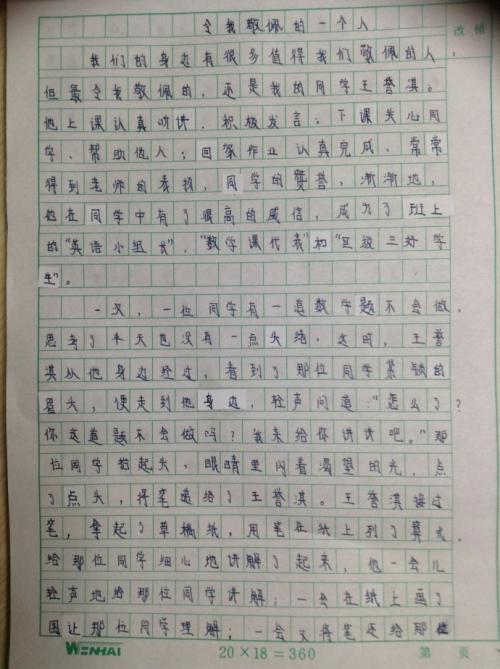 令我敬佩的一个人
改错
我们的身边有很多值得我们敬佩的人,
但最令我敬佩的,还是我的同学王誉淇。
他上课认真听讲、积极发言;下课关心同
学、帮助他人;回家作业认真完成,常常
得到老师的表扬,同学的赞誉,渐渐地,
他在同学中有了很高的威信,成为了班上
的“英语小组长”、“数学课代表”和“区级三好学
生”。
一次,一位同学有一道数学题不会做,
思考了半天也没有一点头绪。这时,王誉
淇从他身边经过,看到了那位同学紧锁的
眉头,便走到他身边,轻声问道:“怎么了?
你这道题不会做吗?我来给你讲讲吧。”那
位同学抬起头,眼睛里闪着渴望的光,点
了点头,将笔递给了王誉淇。王誉淇接过
笔,拿起了草稿纸,用笔在纸上列了算式,
给那位同学细心地讲解了起来,他一会儿
轻声地给那位同学讲解;一会在纸上画了
图让那位同学理解;一会又将笔还给那位
WENHAI
20×18=360
第 页